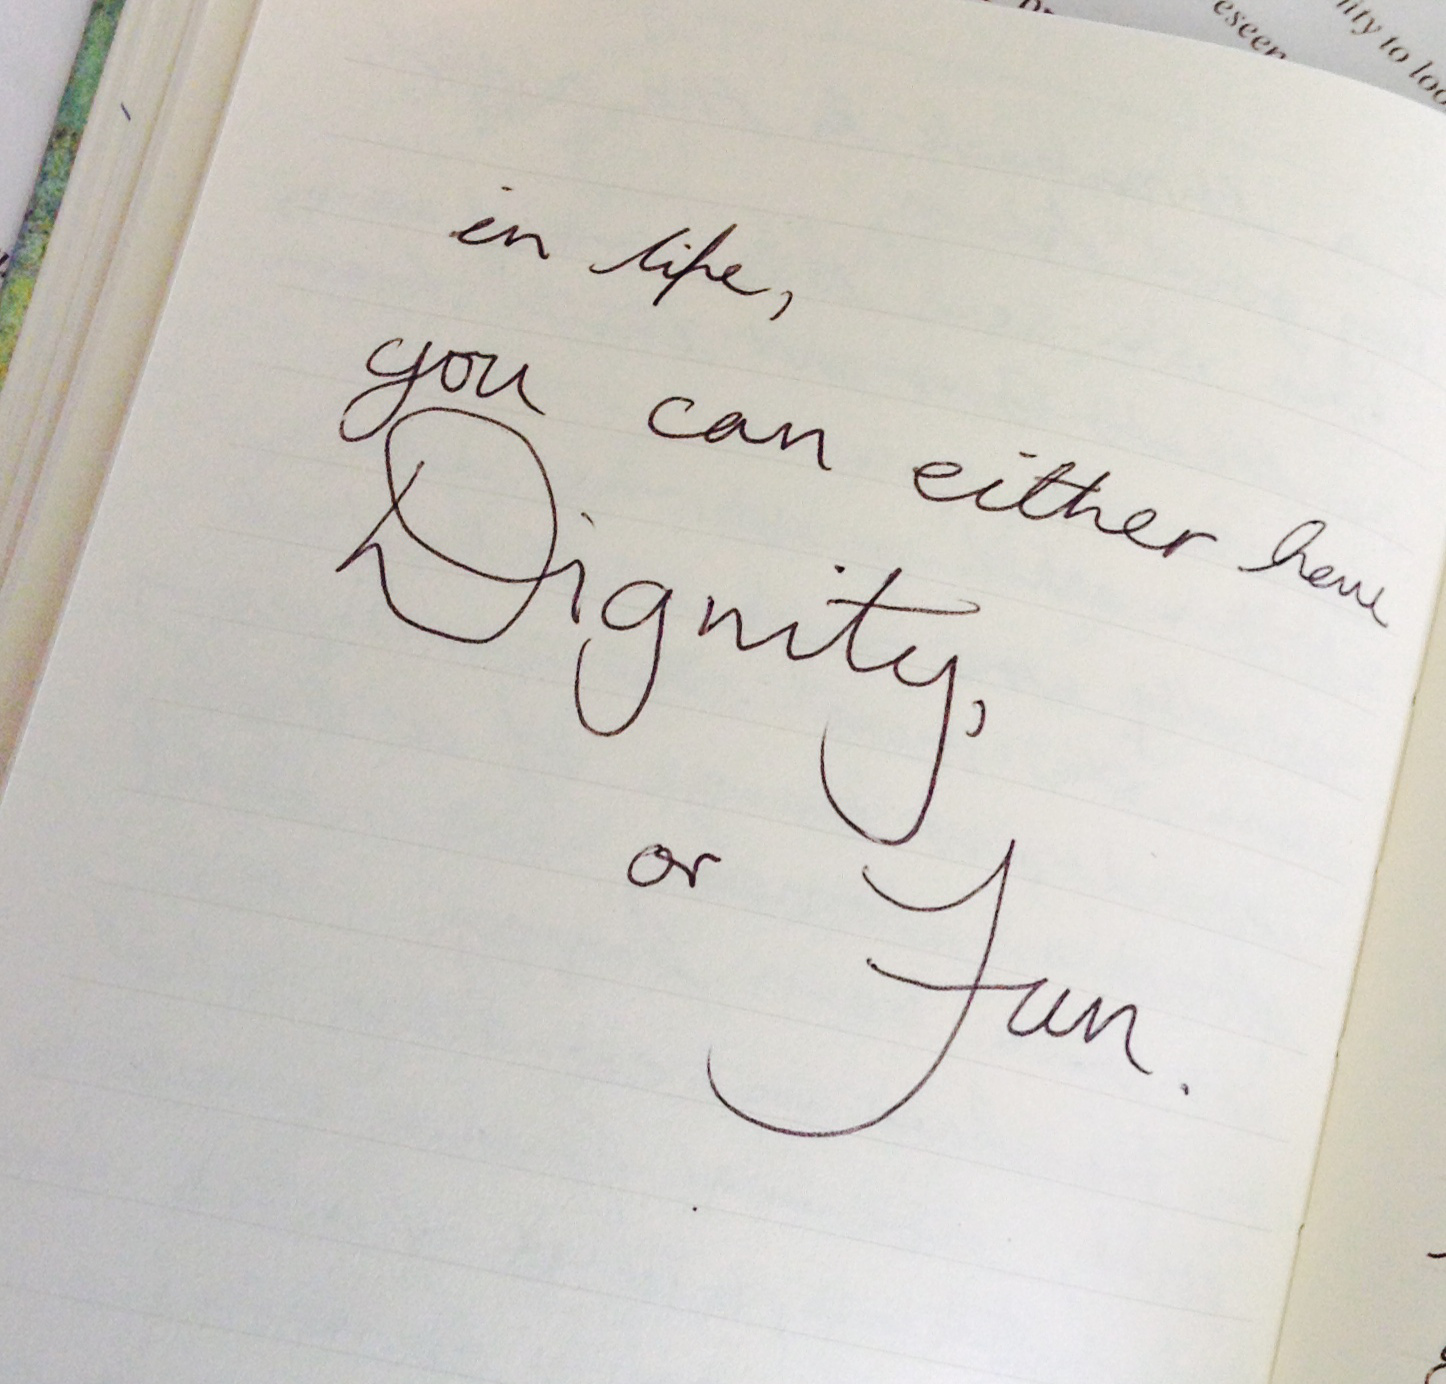 eseen
ity to loo
in life,
you can either have
Dignity,
or Fun.